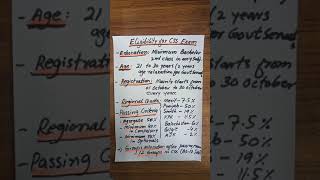 Eligibility for CSS Exam
• Education: Minimum Bachelor
2nd class in any subj
• Age: 21 to 30 years (2 years
age relaxation for Govt Servant
• Registration: Mainly starts from
October to 30 October
Every year.
• Regional Quota
Merit - 7.5%
Punjab - 50%
Sindh - 19%
KPK - 11.5%
Balochistan - 6%
Gilgit - 4%
AJK - 2%
• Passing Criteria
• Aggregate 50%
• Minimum 40%
in Compulsory
• Minimum 33%
in Optionals
• Age: 21
age
• Registration
Regional
Passing
(2 years
for Govt Servant
starts from
30 October
7.5%
50%
19%
11.5%